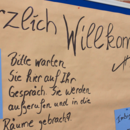 rzlich Willkom
Bitte warten
Sie hier auf Ihr
Gespräch. Sie werden
aufgerufen und in die
Räume gebracht.